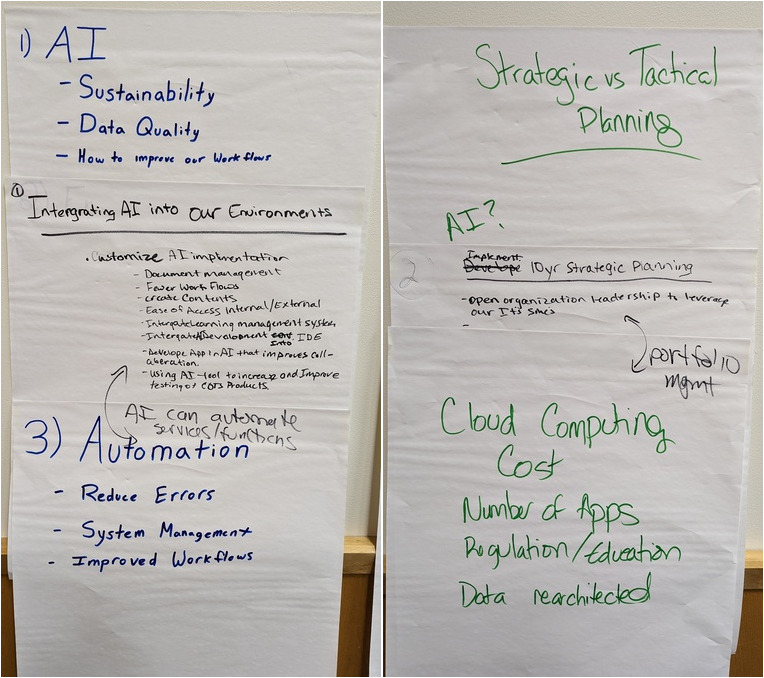 1) AI
- Sustainability
- Data Quality
- How to improve our Workflows
①
Intergrating AI into our Environments
. Customize AI implmentation
- Document management
- Fewer Work Flows
- create Contents
- Ease of Access Internal/External
- Intergate Learning management system
- Intergate Development Into IDE
- Develope App in AI that improves coll-
aberation.
- Using AI-tool to increase and Improve
testing of COTS Products.
AI can automate
services/functions
3) Automation
- Reduce Errors
- System Management
- Improved Workflows
Strategic vs Tactical
Planning
AI?
2
Implement
Develope 10yr Strategic Planning
- Open organization leadership to leverage
our IT's SMEs
-
portfolio
mgmt
Cloud Computing
Cost
Number of Apps
Regulation/Education
Data rearchitected